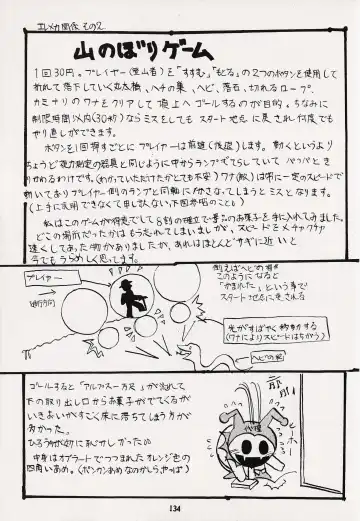 エレメカ関係 その2
山のぼりゲーム
1回30円。プレイヤー(登山者)を「すすむ」「もどる」の2つのボタンを使用して
折れて落下していく丸太橋、ハチの巣、ヘビ、落石、切れるロープ、
カミナリのワナをクリアして頂上へゴールするのが目的。ちなみに
制限時間以内(30秒)ならミスをしても スタート地点に戻され何度でも
やり直しができます。
ボタンを1回押すごとにプレイヤーは前進(後退)します。動くというより
ちょうど視力測定の器具と同じように中からランプでてらしていて パっパっとき
りかわるわけです。(わかっていただけたかとても不安) ワナ(敵)は常に一定のスピードで
動いておりプレイヤー側のランプと同軸に1つかさなってしまうとミスとなります。
(上手に説明できなくて申し訳ない、下図参照のこと)
私はこのゲームが得意でしても8割の確立で景品のお菓子を手に入れてみました。
どこの場所だったかはもう忘れてしまいましが、スピードをメチャクチャ
速くしてあった物がありましたが、あれはほとんどサギに近いと
今でもうらめしく思ってます。
プレイヤー
進行方向
例えばヘビの時
このようになると
「かまれた」という事で
スタート地点に戻される
光がすばやく移動する
(ワナによりスピードはちがう)
ヘビの敵
ゴールすると「アルプス一万尺」が流れて
下の取り出し口からお菓子がでてくるが
いきおいがすごく床に落ちてしまう方が
多かった。
ひろう時が妙にはずかしかった
中身はオブラートでつつまれたオレンジ色の
四角いあめ。(ボンタンあめなのかしら、やっぱ)
代理
134